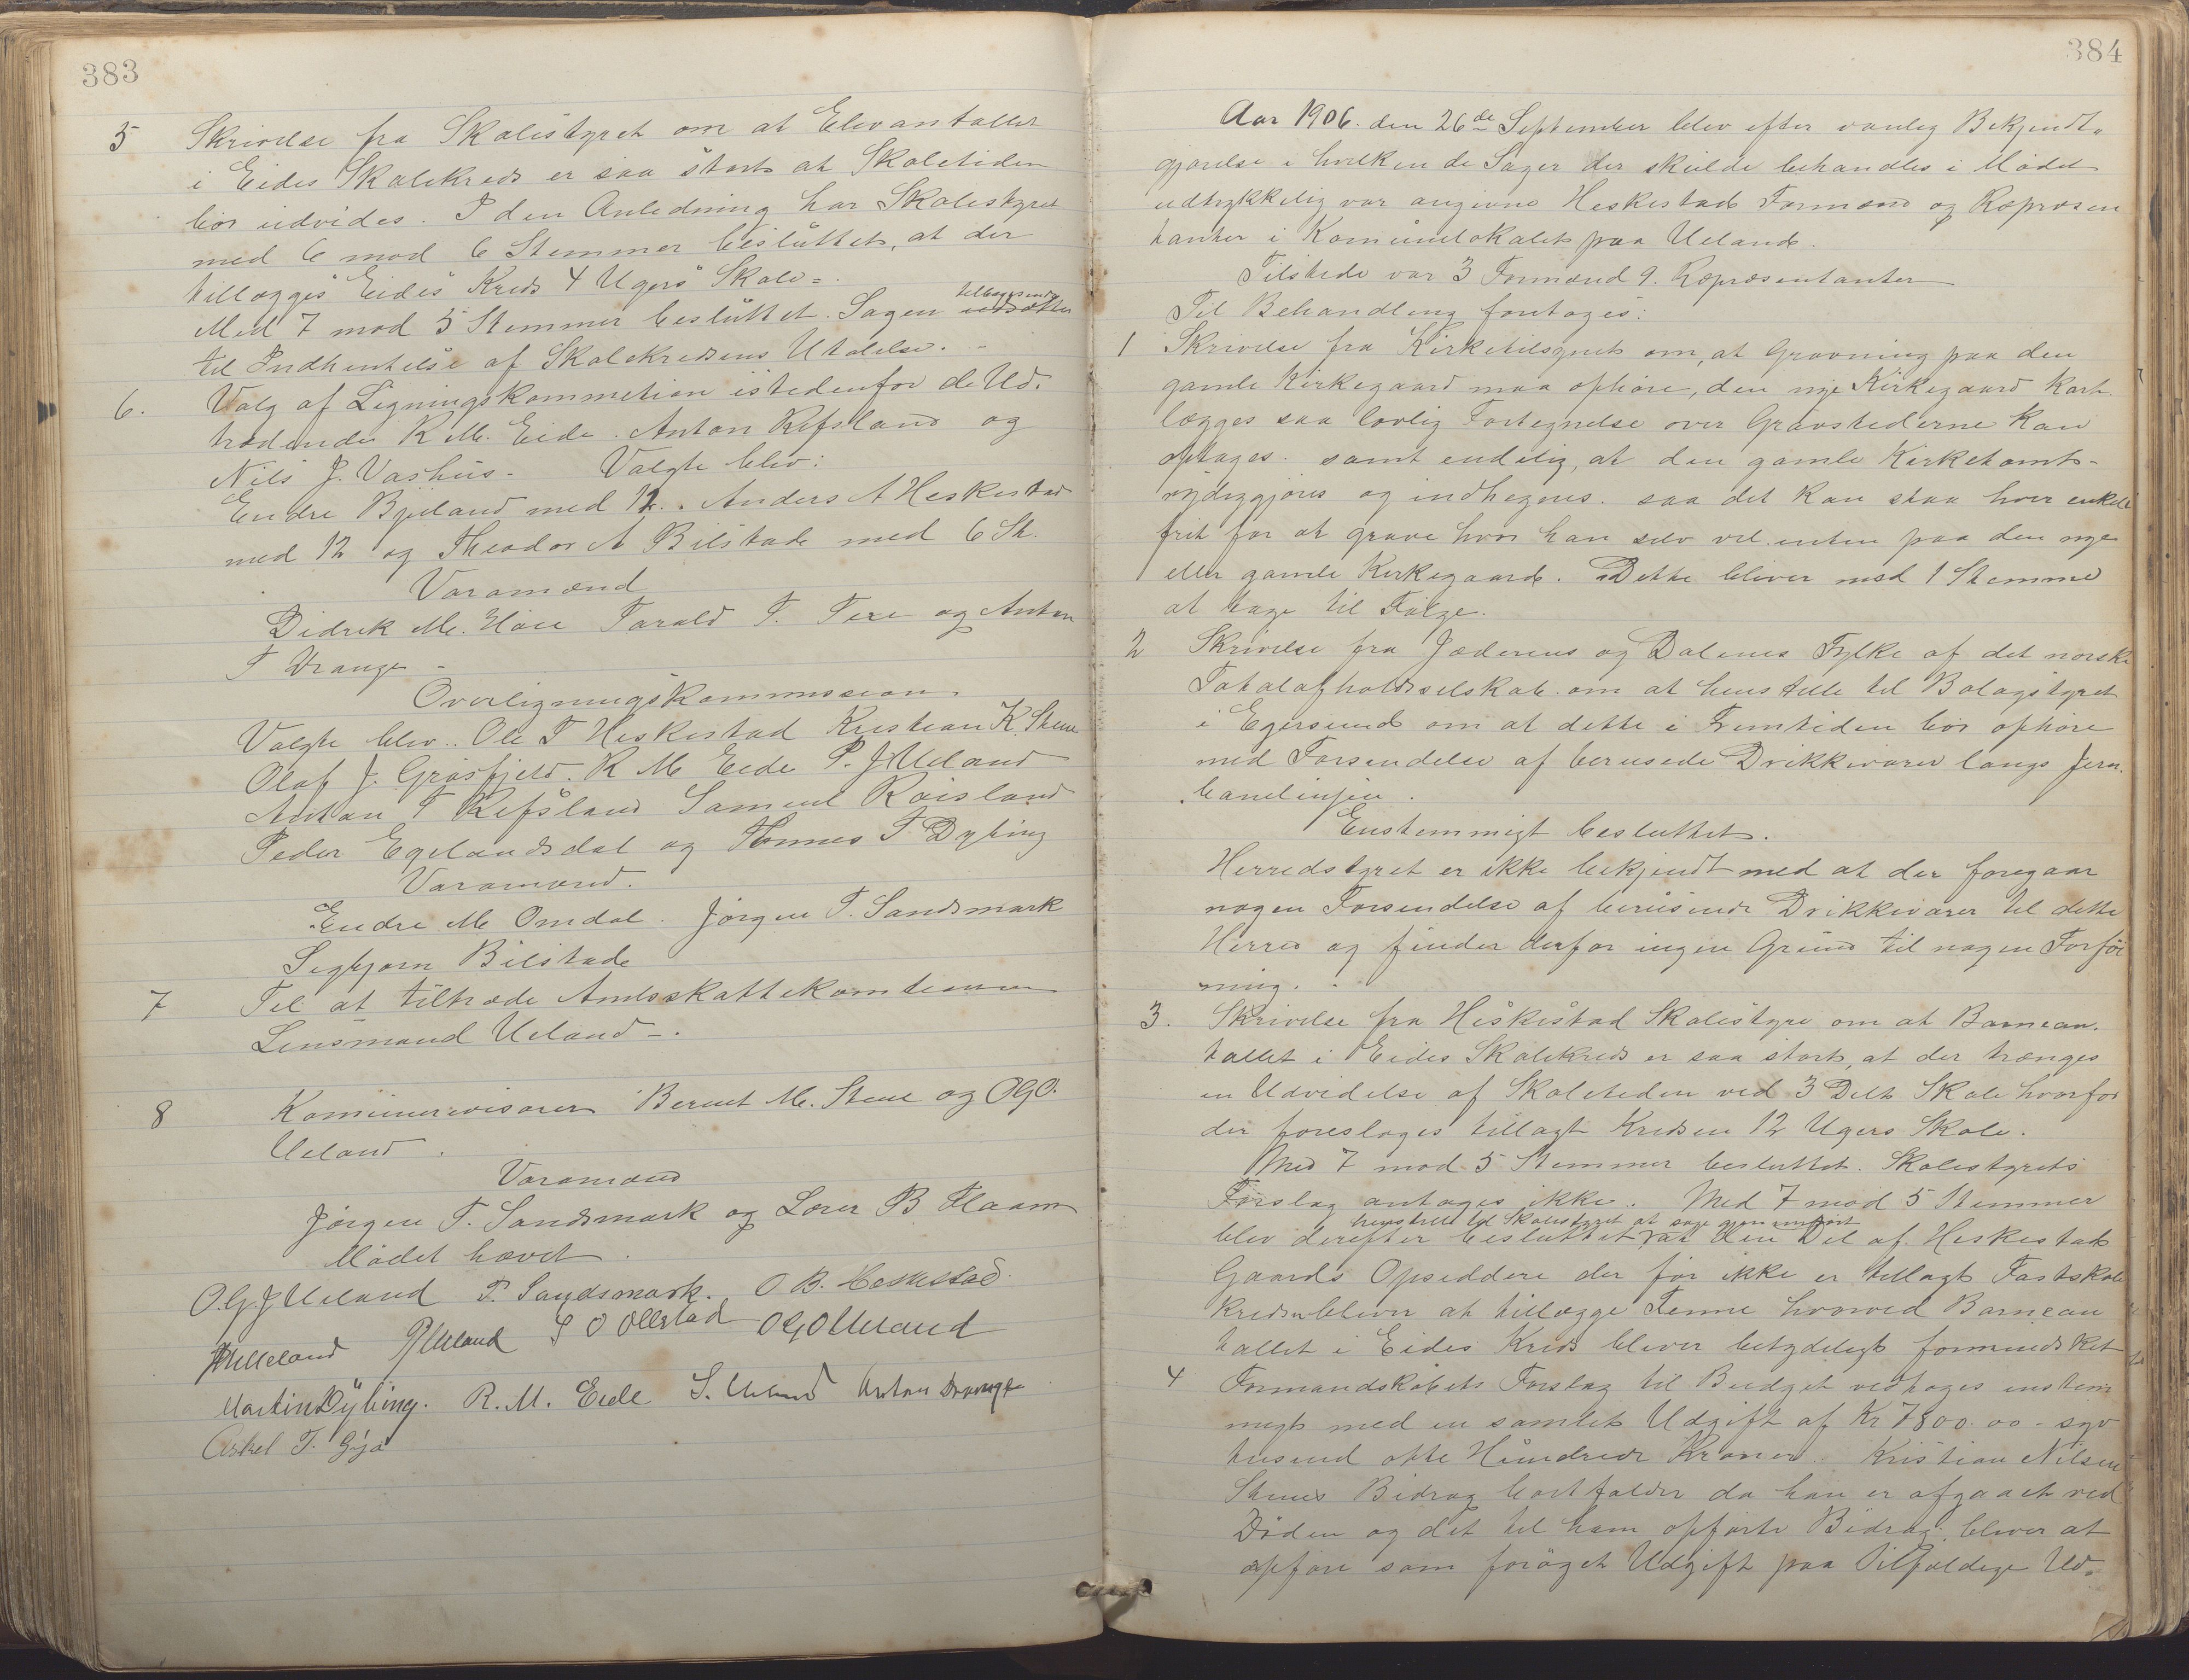 383
5 Skrivelse fra Skolestyret om at Elevantallet
i Eides Skolekreds er saa stort at Skoletiden
bør udvides. I den Anledning har Skolestyret
med 6 mod 6 Stemmer besluttet, at der
tillægges Eides Kreds 4 Ugers Skole=.
Med 7 mod 5 Stemmer besluttet. Sagen tilbagesendes udsættes
til Indhentelse af Skolekredsens Utalelse. -
6. Valg af Ligningskommetion istedenfor de Ud.
trædende R. M. Eide. Anton Refsland og
Nils J. Vashus. Valgte blev:
Endre Bjeland med 12. Anders A Heskestad
med 12 og Theodor A Bilstad med 6 St.
Varamænd
Didrik M. Hove Tarald T. Fere og Anton
T Drange -
Overligningskommission
Valgte blev.. Ole T Heskestad Kristian K. Stene
Olaf J. Grøsfjeld. R M Eide P. J Ueland
Anton T Refsland Samuel Røisland
Peder Egelandsdal og Tønnes T. Dybing
Varamænd.
Endre M Omdal. Jørgen T. Sandsmark
Sigbjørn Bilstad
7 Til at tiltræde Amtsskattekomtionen
Lensmand Ueland -.
8 Komunerevisorer Berent M. Stene og OGO.
Ueland.
Varamænd
Jørgen T. Sandsmark og Lærer B Flaam
Mødet hævet.
O.G.J Ueland T. Sandsmark. O B. Heskestad.
Ueland PJUeland S O Ollestad OGOUeland
Martin Dybing. R. M. Eide S. Ueland Anton Drange
Askel T. Gya
384
Aar 1906. den 26de September blev efter vanlig Bekjendt=
gjørelse i hvilken de Sager der skulde behandles i Mødet
udtrykkelig var angivne Heskestad Formænd og Repræsen
tanter i Komunelokalet paa Ueland.
Tilstede var 3 Formænd 9. Repræsentanter
Til Behandling foretoges:
1 Skrivelse fra Kirketilsynet om, at Gravning paa den
gamle Kirkegaard maa ophøre, den nye Kirkegaard kart
lægges saa lovlig Fortegnelse over Gravstederne kan
optages. samt endelig, at den gamle Kirketomt-
rydiggjøres og indhegnes. saa det kan staa hver enkelt
frit for at grave hvor han selv vil enten paa den nye
eller gamle Kirkegaard. Dette bliver mod 1 Stemme
at tage til Følge.
2 Skrivelse fra Jæderens og Dalenes Fylke af det norske
Totalafholdsselskab om at henstille til Bolagstyret
i Egersund om at dette i Fremtiden bør ophøre
med Forsendelse af berusede Drikkevarer langs Jern.
banelinjen.
Enstemmigt besluttet.
Herredstyret er ikke bekjendt med at der foregaar
nogen Forsendelse af berusende Drikkevarer til dette
Herred og finder derfor ingen Grund til nogen Forføi
ning.
3. Skrivelse fra Heskestad Skolestyre om at Barnean.
tallet i Eides Skolekreds er saa stort, at der trænges
en Udvidelse af Skoletiden ved 3 Delt Skole hvorfor
der foresloges tillagt Kredsen 12 Ugers Skole.
Med 7 mod 5 Stemmer besluttet. Skolestyrets
Forslag antages ikke. Med 7 mod 5 Stemmer
henstille til Skolestyret at søge gjennemført
blev derefter besluttet at den Del af Heskestad
Gaards Opsiddere der før ikke er tillagt Fastskole
kredsen bliver at tillægge Denne hvorved Barnean
tallet i Eides Kreds bliver betydeligt formindsket
4 Formandskabets Forslag til Budget vedtages enstem
migt med en samlet Udgift af Kr 7800.00 - syv
tusend otte Hundrede Kroner. Kristian Nilsen
Stenes Bidrag bortfalder da han er afgaaet ved
Døden og det til ham opførte Bidrag bliver at
opføre som forøget Udgift paa Tilfældige Ud.